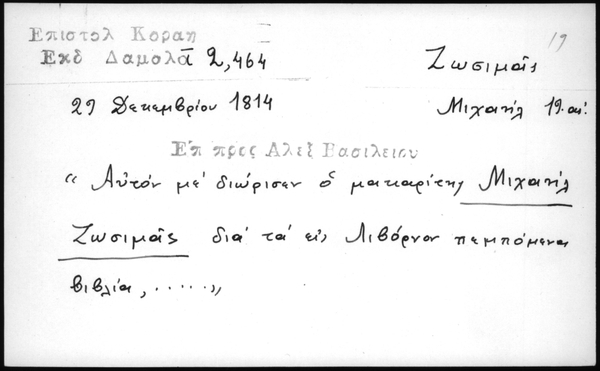 Επιστολ Κοραη
Εκδ Δαμαλᾶ 2,464
19
Ζωσιμᾶς
29 Δεκεμβρίου 1814
Μιχαήλ 19. αἰ.
Επ προς Αλεξ Βασιλειου
“ Αὐτόν μέ διώρισεν ὁ μακαρίτης Μιχαήλ
Ζωσιμᾶς διά τά εἰς Λιβόρνον πεμπόμενα
βιβλία, ..... „